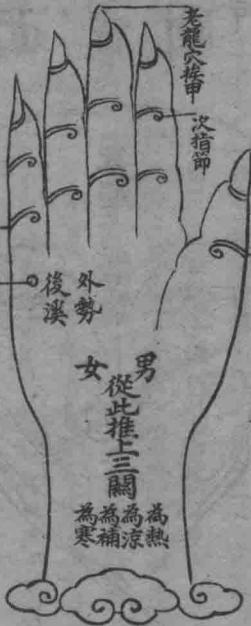 老龍穴挨甲
次指節
外勢
後溪
男
女
從此推上三關
為熱
為涼
為補
為寒